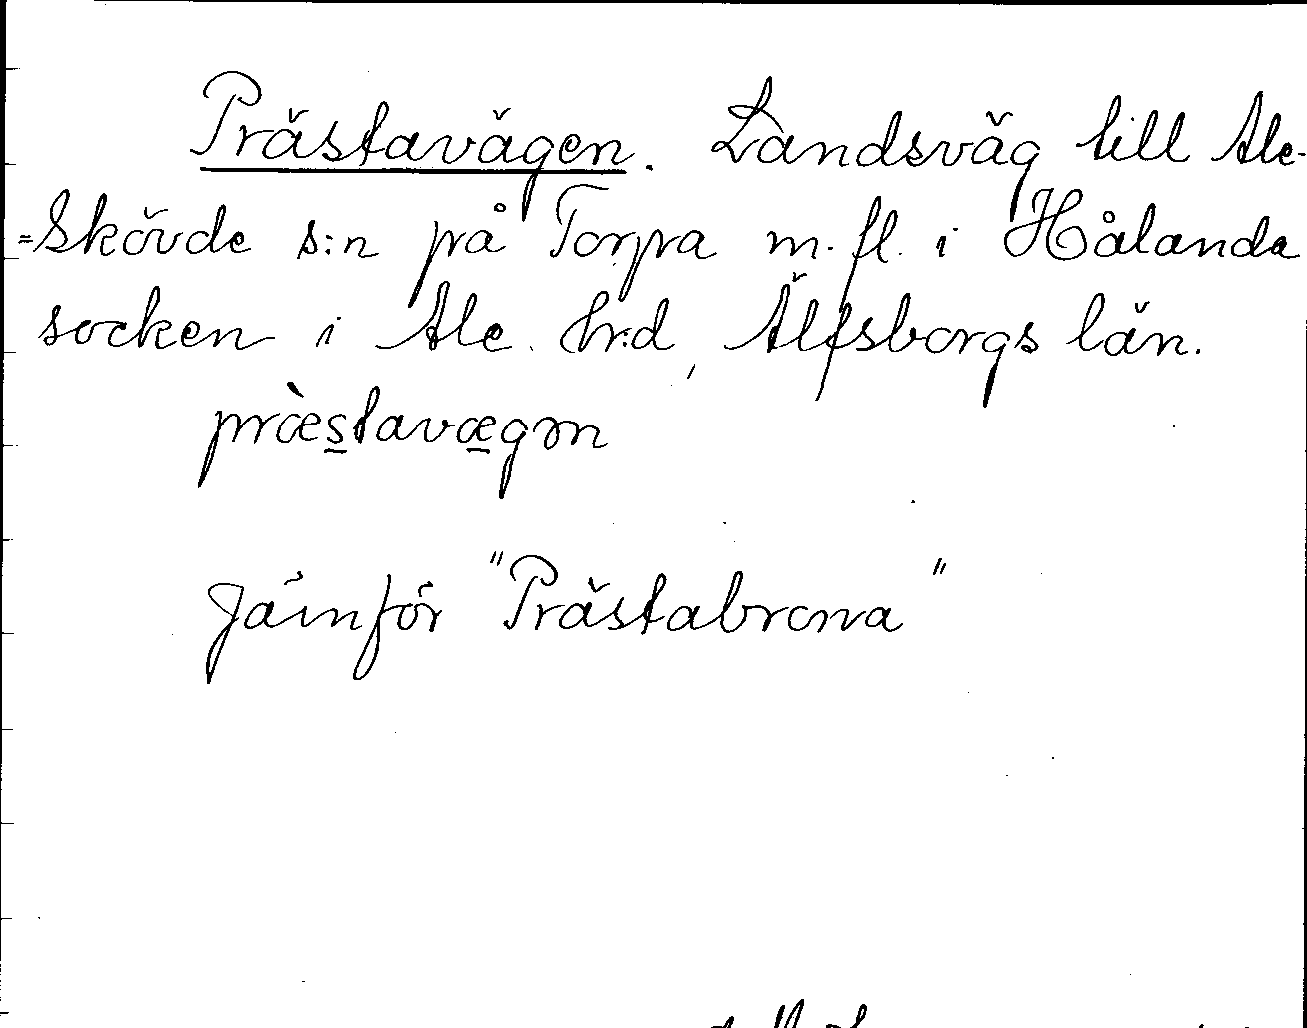 Prästavägen. Landsväg till Ale-
=Skövde s:n på Torpa m.fl. i Hålanda
socken i Ale hrd, Älfsborgs län.
præ̀stavægən
Jämför "Prästabrona"